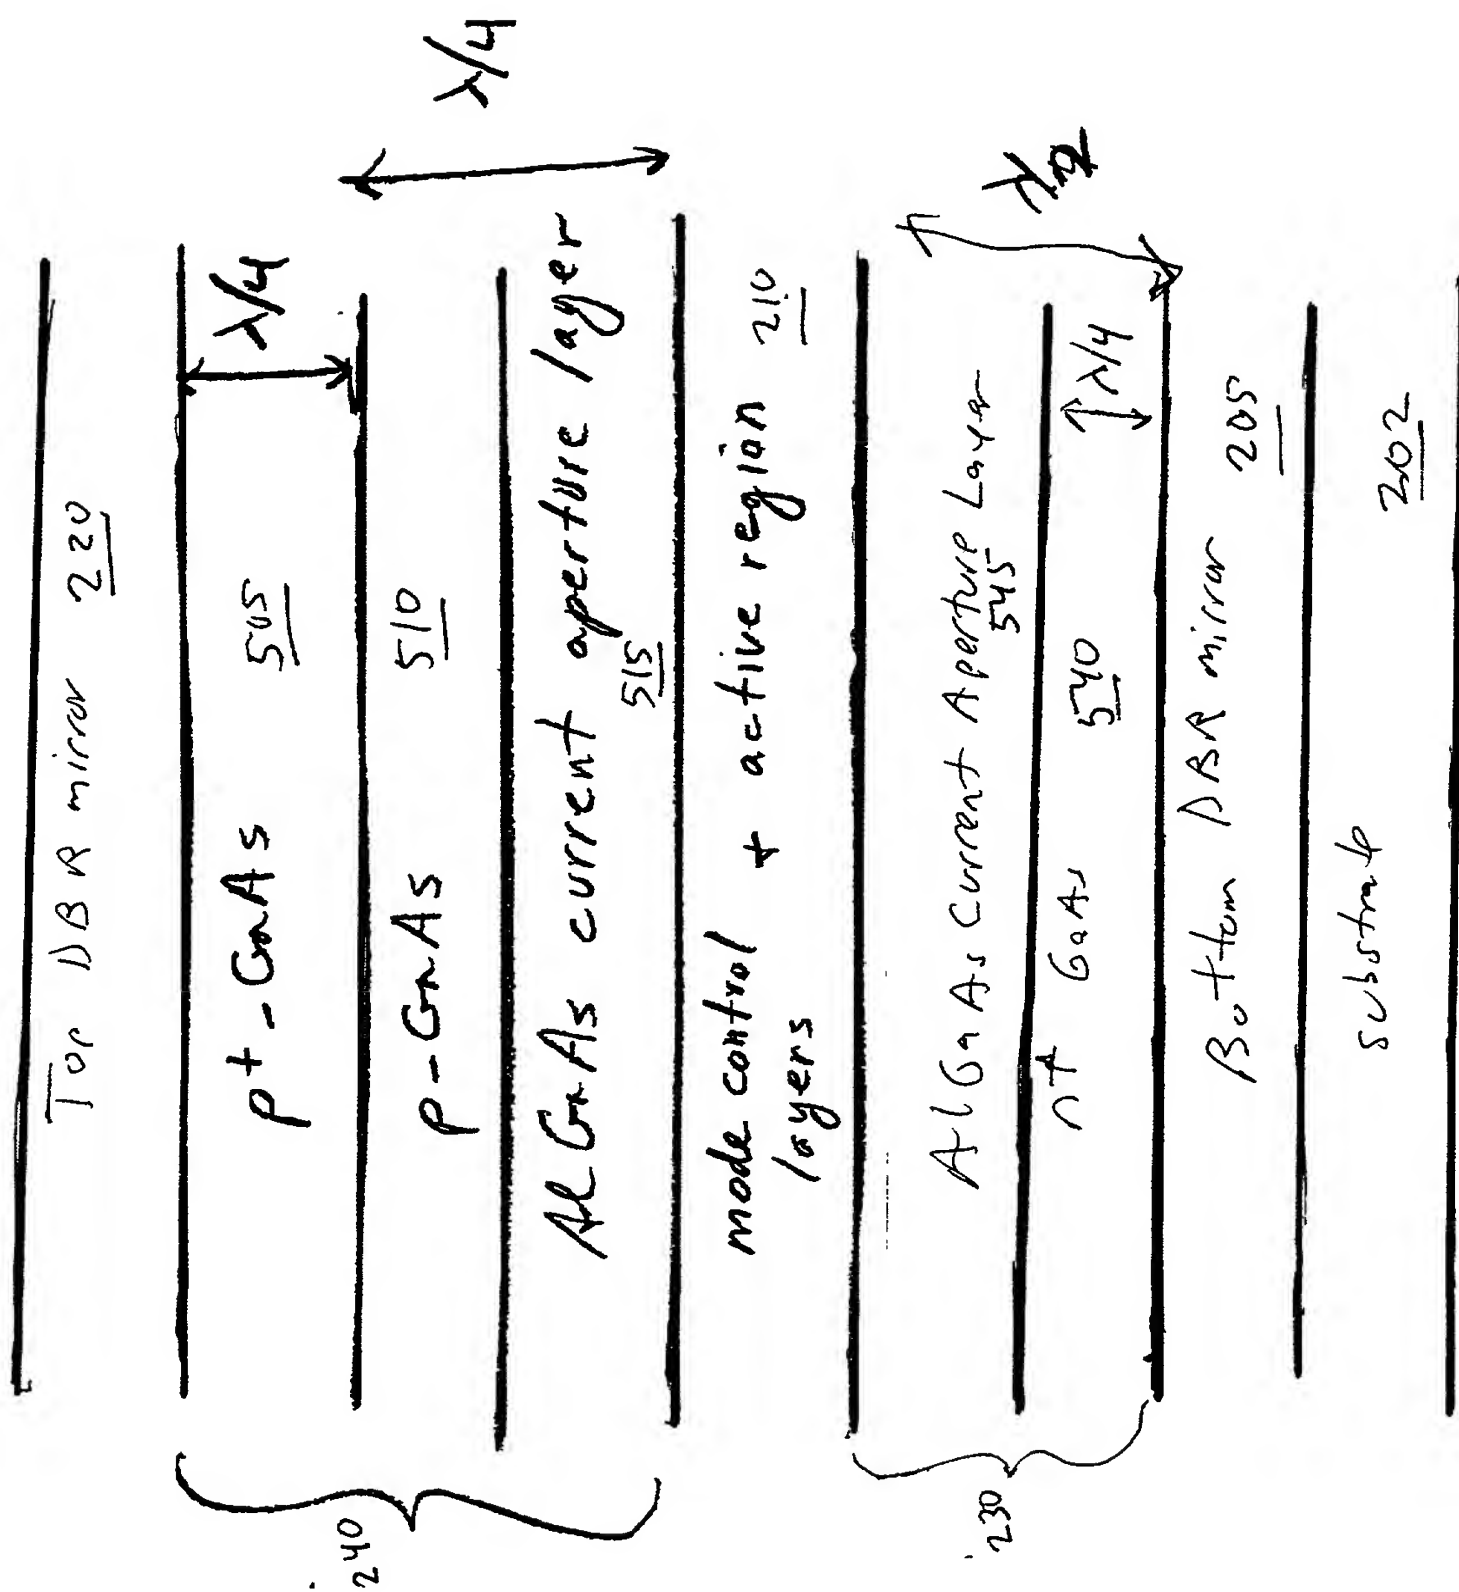 Top DBR mirror 220
p+-GaAs 505 λ/4
p-GaAs 510
λ/4
AlGaAs current aperture layer
515
mode control + active region 210
layers
AlGaAs Current Aperture Layer
545
n+ GaAs 540 λ/4
Bottom DBR mirror 205
substrate 202
240
230